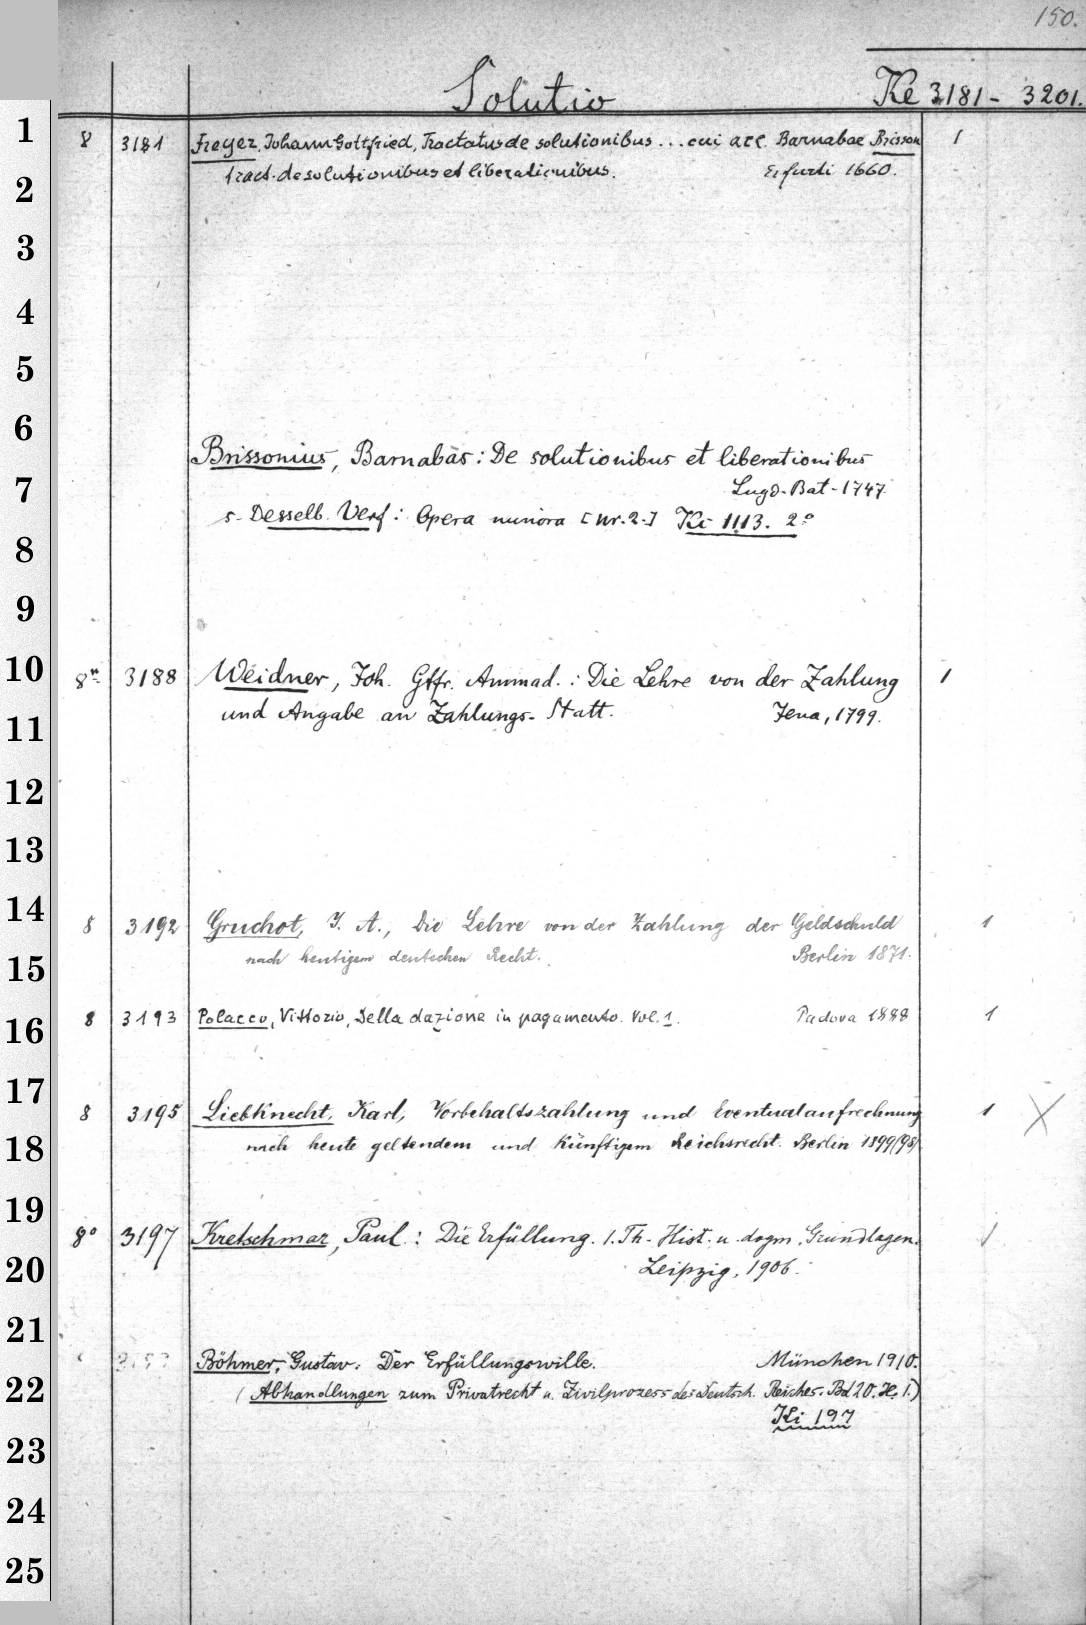 150.
Solutio Ke 3181 - 3201.
1 8 3181 Freyer, Johann Gottfried, Tractatus de solutionibus ... cui acc. Barnabae Brisson 1
2 tract. de solutionibus et liberationibus. Erfurti 1660.
3
4
5
6 Brissonius, Barnabas: De solutionibus et liberationibus
7 Lugd. Bat. 1747.
s. Desselb. Verf: Opera minora [Nr. 2.] Ki 1113. 2°
8
9
10 8° 3188 Weidner, Joh. Gffr. Ammad.: Die Lehre von der Zahlung 1
11 und Angabe an Zahlungs-Statt. Jena, 1799.
12
13
14 8 3192 Gruchot, J. A., Die Lehre von der Zahlung der Geldschuld 1
15 nach heutigem deutschen Recht. Berlin 1871.
16 8 3193 Polacco, Vittorio, Della dazione in pagamento. Vol. 1. Padova 1888 1
17 8 3195 Liebknecht, Karl, Vorbehaltszahlung und Eventualaufrechnung 1 X
18 nach heute geltendem und künftigem Reichsrecht. Berlin 1899(98)
19 8° 3197 Kretschmar, Paul: Die Erfüllung. 1. Th. Hist. u. dogm. Grundlagen. 1
20 Leipzig, 1906.
21 Böhmer, Gustav: Der Erfüllungswille. München 1910.
22 (Abhandlungen zum Privatrecht u. Zivilprozess des Deutsch. Reiches. Bd 20. H. 1.)
Ki 197
23
24
25